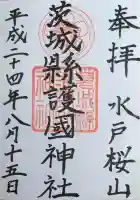 奉拝 水戸桜山
茨城縣護國神社
平成二十四年八月十五日